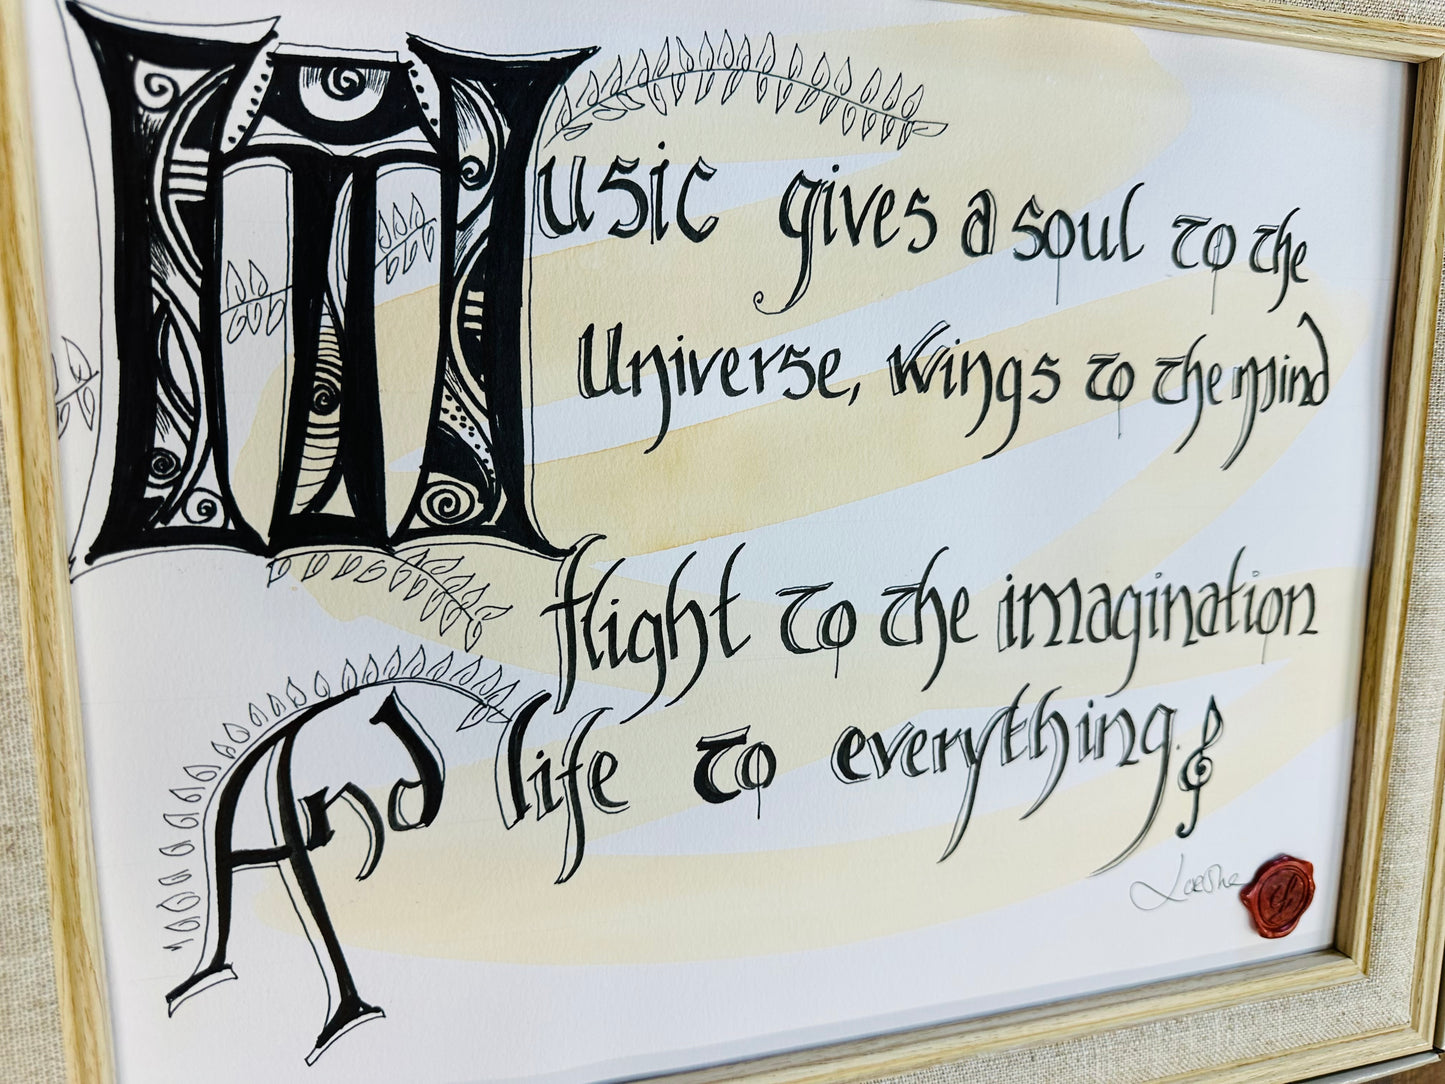 Music gives a soul to the
Universe, wings to the mind
flight to the imagination
And life to everything.